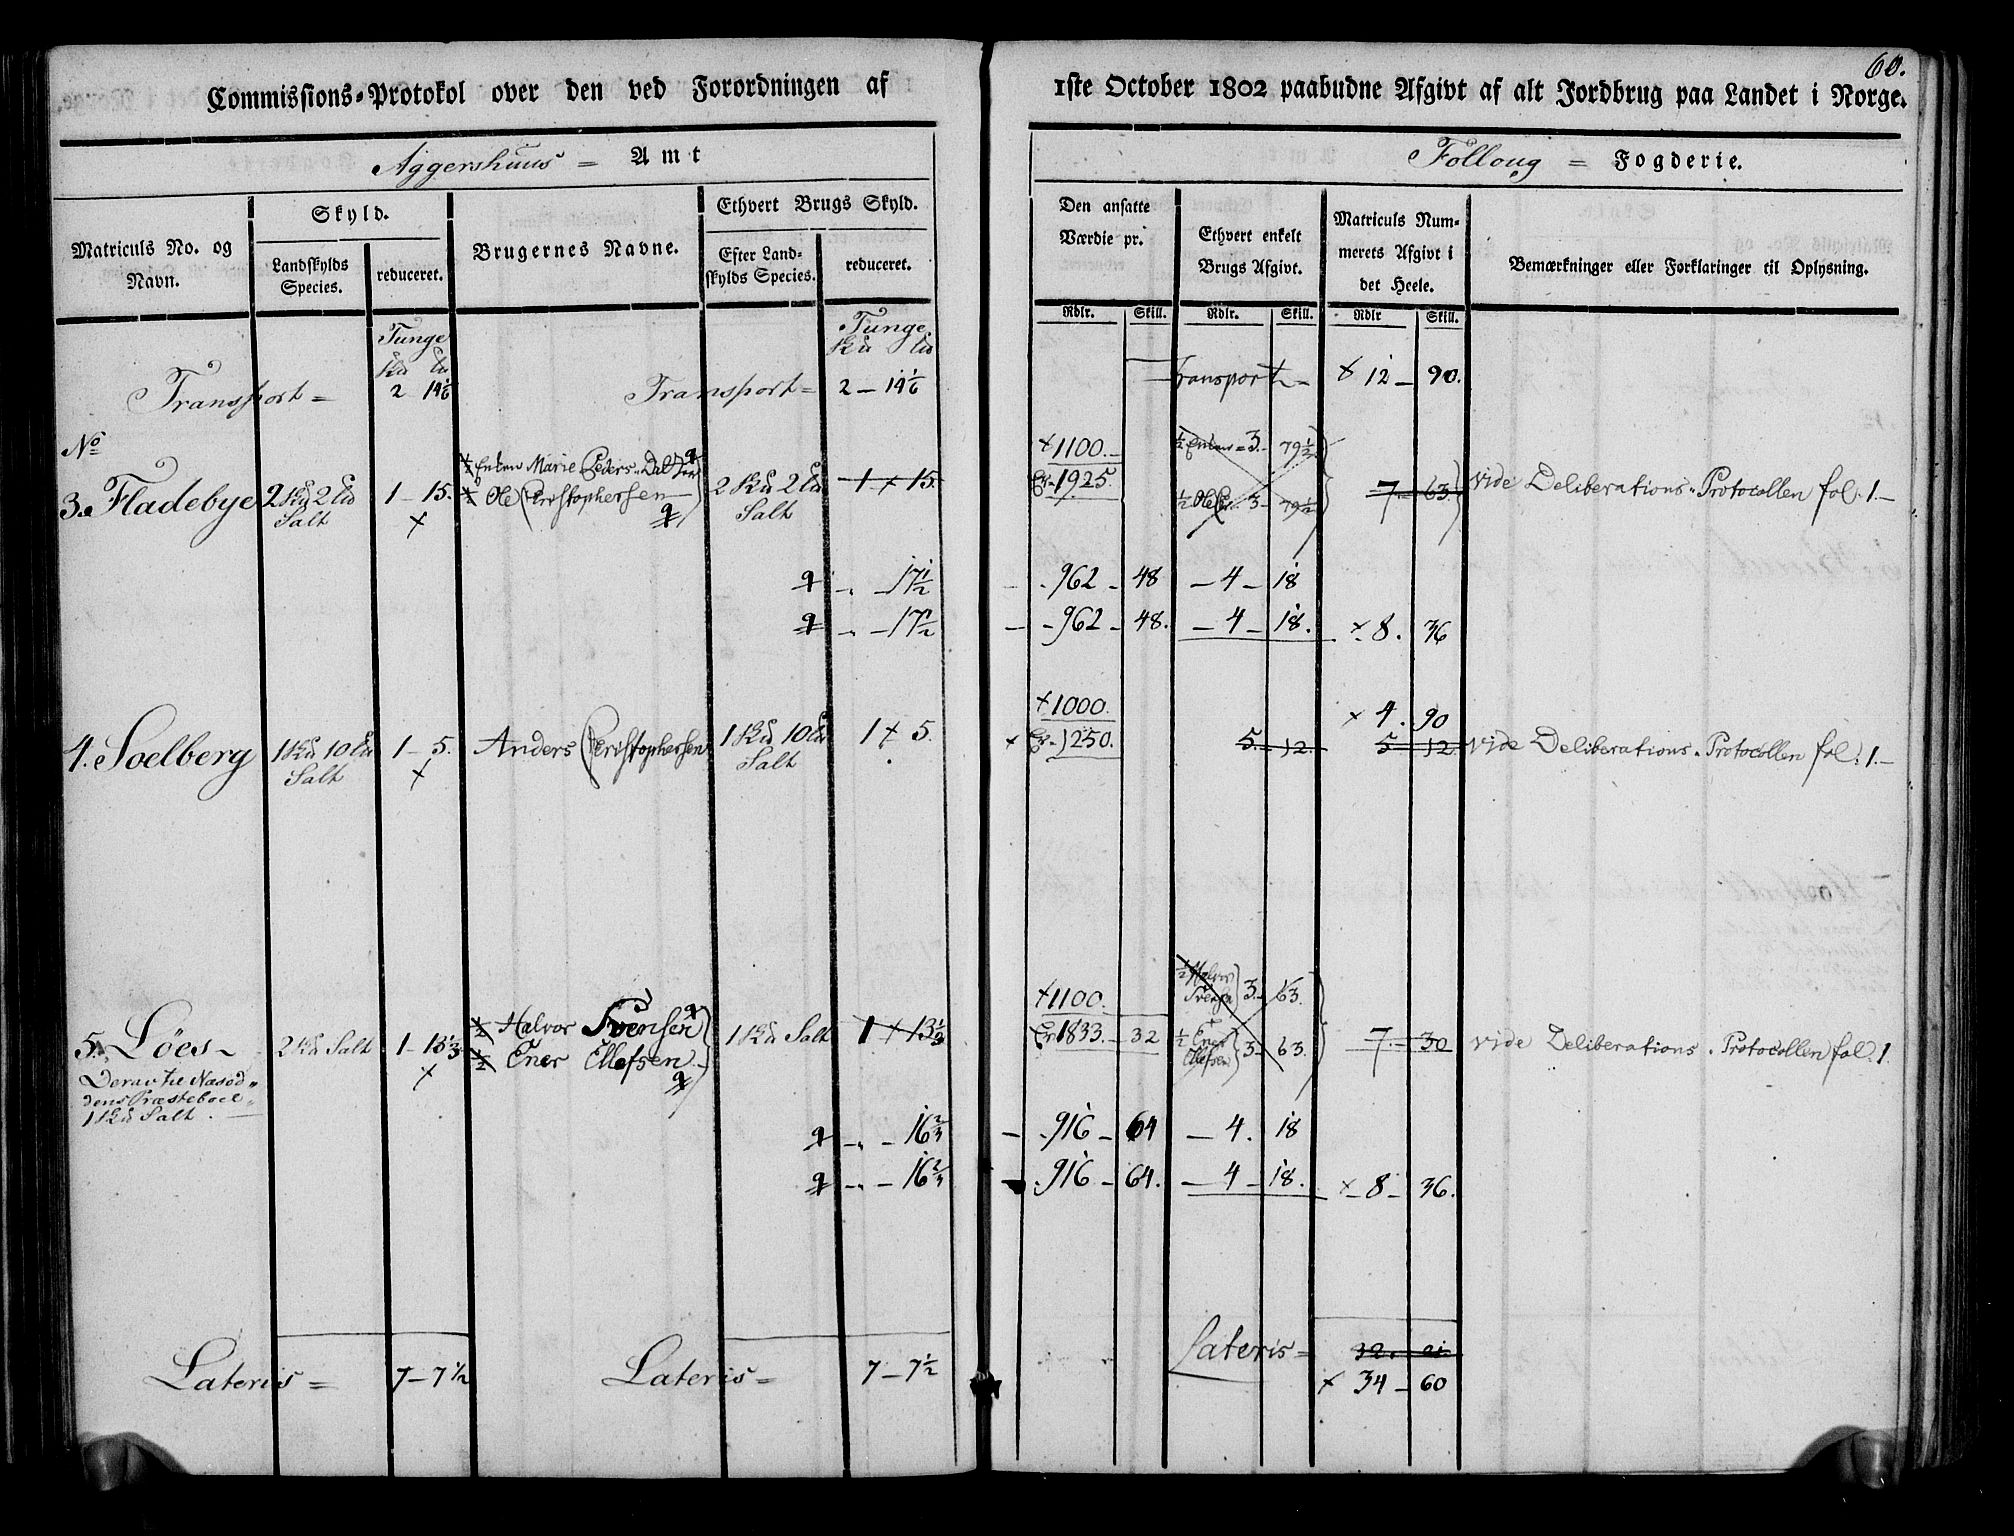 Commissions-Protokol over den ved Forordningen af
Aggershuus = Amt
Matriculs No. og Navn.
Skyld.
Landskylds Species.
reduceret.
Brugernes Navne.
Ethvert Brugs Skyld.
Efter Landskylds Species.
reduceret.
Tunge
Tunge
Transport =
2 14 1/6
Transport =
2 – 14 1/6
No
3. Fladebye
2 Hud 2 Lod Salt
1 – 15.
1/2 Enken Marie Peders-Datter
1/2 Ole Christophersen
2 Hud 2 Lod Salt
1 + 15.
17 1/2
17 1/2
4. Soelberg
1 Hud 10 Lod Salt
1 – 5.
Anders Christophersen
1 Hud 10 Lod Salt
1 + 5.
5. Löes
Derav til Næsod-
dens Præsteboel
1 Hud Salt.
2 Hud Salt
1 – 13 1/3
1/2 Halvor Svensen
1/2 Ener Ellefsen
1 Hud Salt
1 + 13 1/3
16 2/3
16 2/3
Lateris =
7 – 7 1/2
Lateris =
7 – 7 1/2
60.
1ste October 1802 paabudne Afgivt af alt Jordbrug paa Landet i Norge.
Folloug = Fogderie.
Den ansatte Værdie pr.
Ethvert enkelt Brugs Afgivt.
Matriculs Nummerets Afgivt i det Heele.
Bemærkninger eller Forklaringer til Oplysning.
Rdlr. Skill. Rdlr. Skill. Rdlr Skill.
Transport – + 12 – 90.
+ 1100.
1925.
1/2 Enken = 3. 79 1/2
1/2 Ole Chr. 3 – 79 1/2
7 – 63
vide Deliberations-Protocollen fol. 1. –
962 – 48 – 4 – 18
962 – 48. – 4 – 18. + 8. 36
+ 1000.
+ 1250.
5. – 12.
+ 4. 90
5 – 12
vide Deliberations-Protocollen fol. 1. –
+ 1100.
1833. – 32
1/2 Halvor Svensen 3. – 63.
1/2 Ener Ellefsen 3 – 63.
7. – 30
vide Deliberations-Protocollen fol. 1.
916 – 64 – 4. 18
916 – 64. – 4 – 18. + 8 – 36.
Lateris =
+ 34 – 60